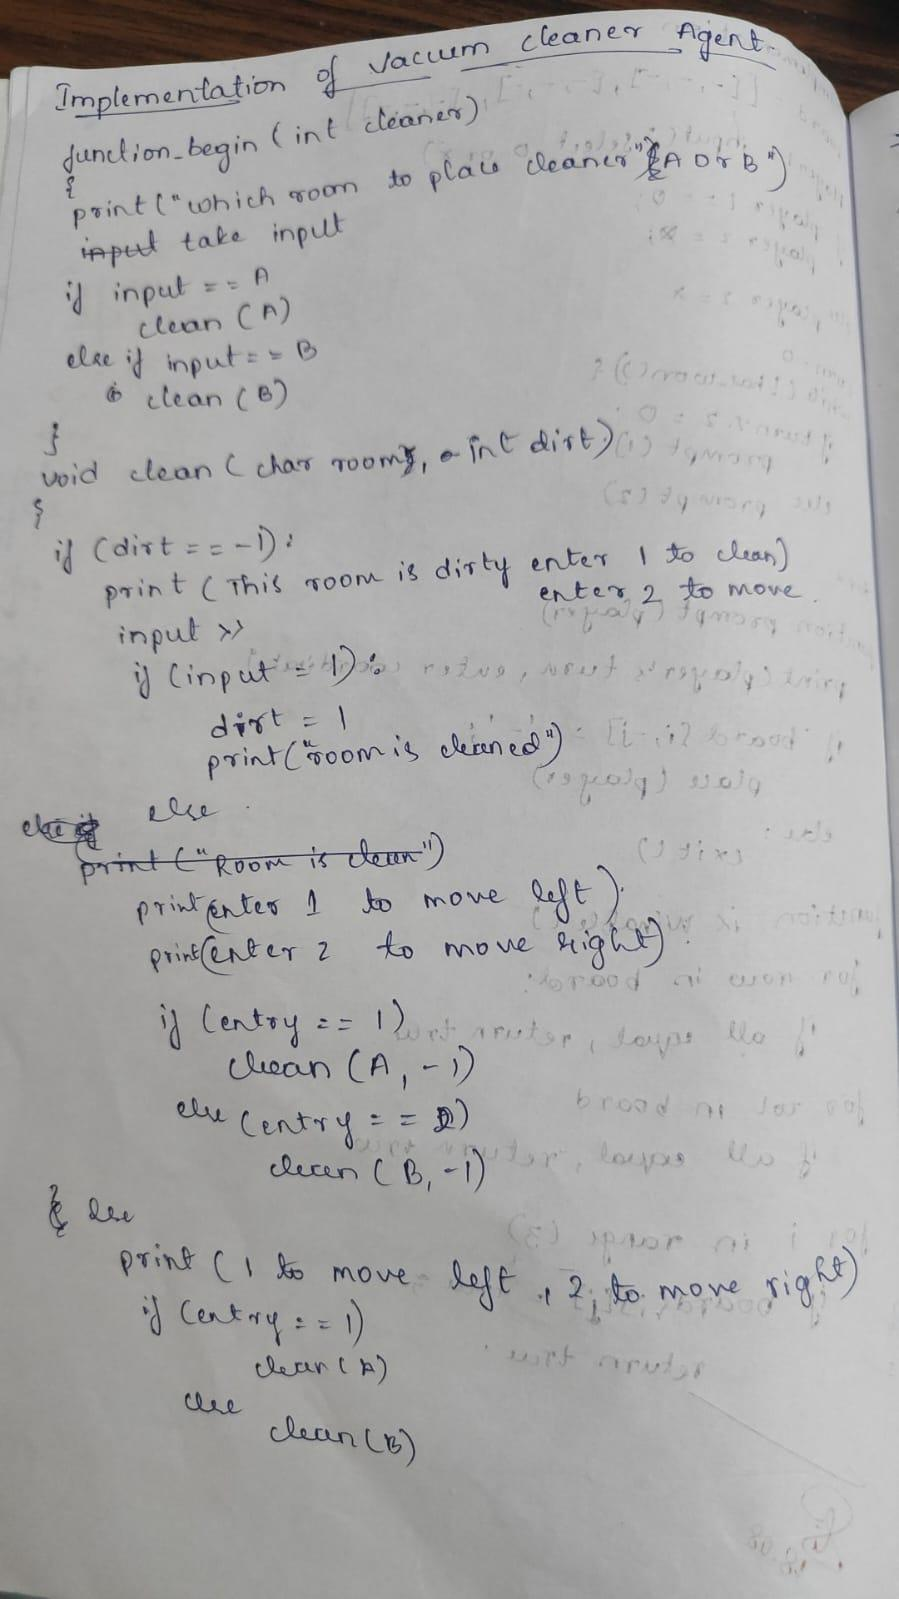 Implementation of Vaccum cleaner Agent
function_begin (int cleaner)
{
print ("which room to place cleaner" A or B")
input take input
if input == A
clean (A)
else if input == B
clean (B)
}
void clean (char room, int dirt)
{
if (dirt == -1):
print (This room is dirty enter 1 to clean)
enter 2 to move.
input >>
if (input = 1):
dirt = 1
print("room is cleaned")
else
else if
print ("Room is clean")
print enter 1 to move left).
print(enter 2 to move right).
if (entry == 1)
clean (A, -1)
else (entry == 2)
clean (B, -1)
else
print (1 to move left, 2, to move right)
if (entry == 1)
clean (A)
else
clean (B)